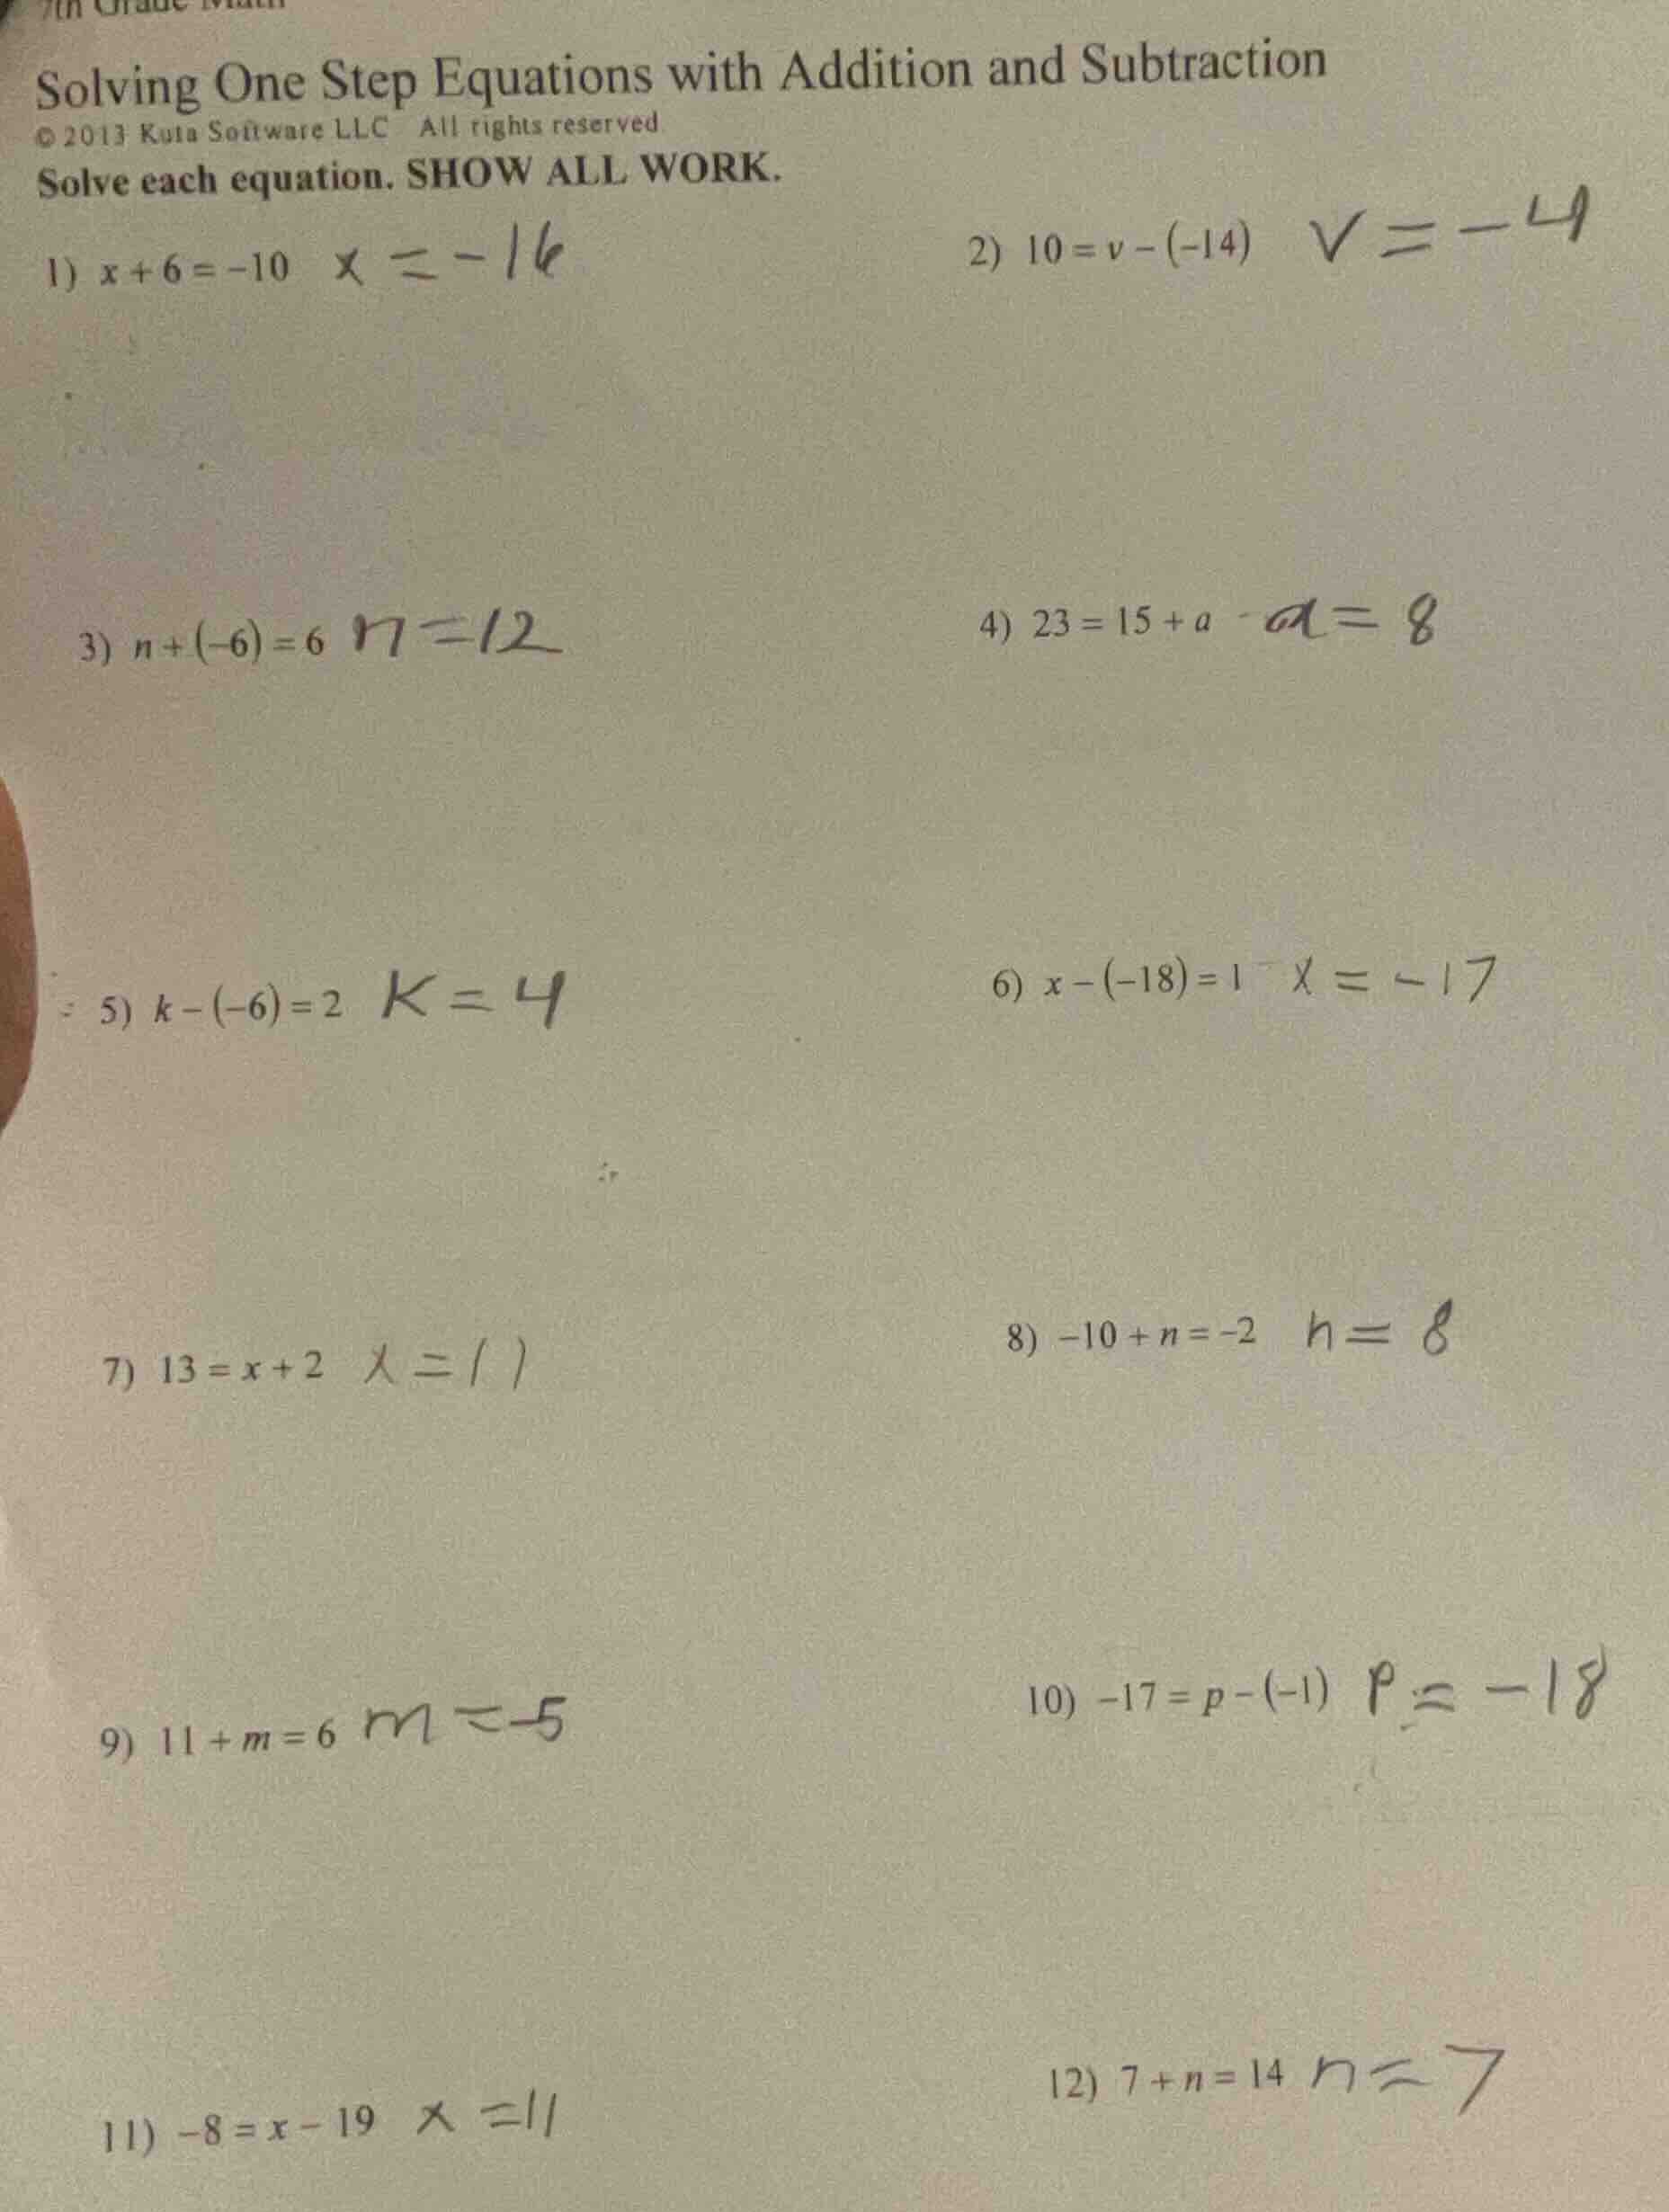 7th Grade Math
Solving One Step Equations with Addition and Subtraction
© 2013 Kuta Software LLC All rights reserved.
Solve each equation. SHOW ALL WORK.
1) x + 6 = −10 x = −16
2) 10 = v − (−14) v = −4
3) n + (−6) = 6 n = 12
4) 23 = 15 + a a = 8
5) k − (−6) = 2 K = 4
6) x − (−18) = 1 x = −17
7) 13 = x + 2 x = 11
8) −10 + n = −2 n = 8
9) 11 + m = 6 m = −5
10) −17 = p − (−1) P = −18
11) −8 = x − 19 x = 11
12) 7 + n = 14 n = 7